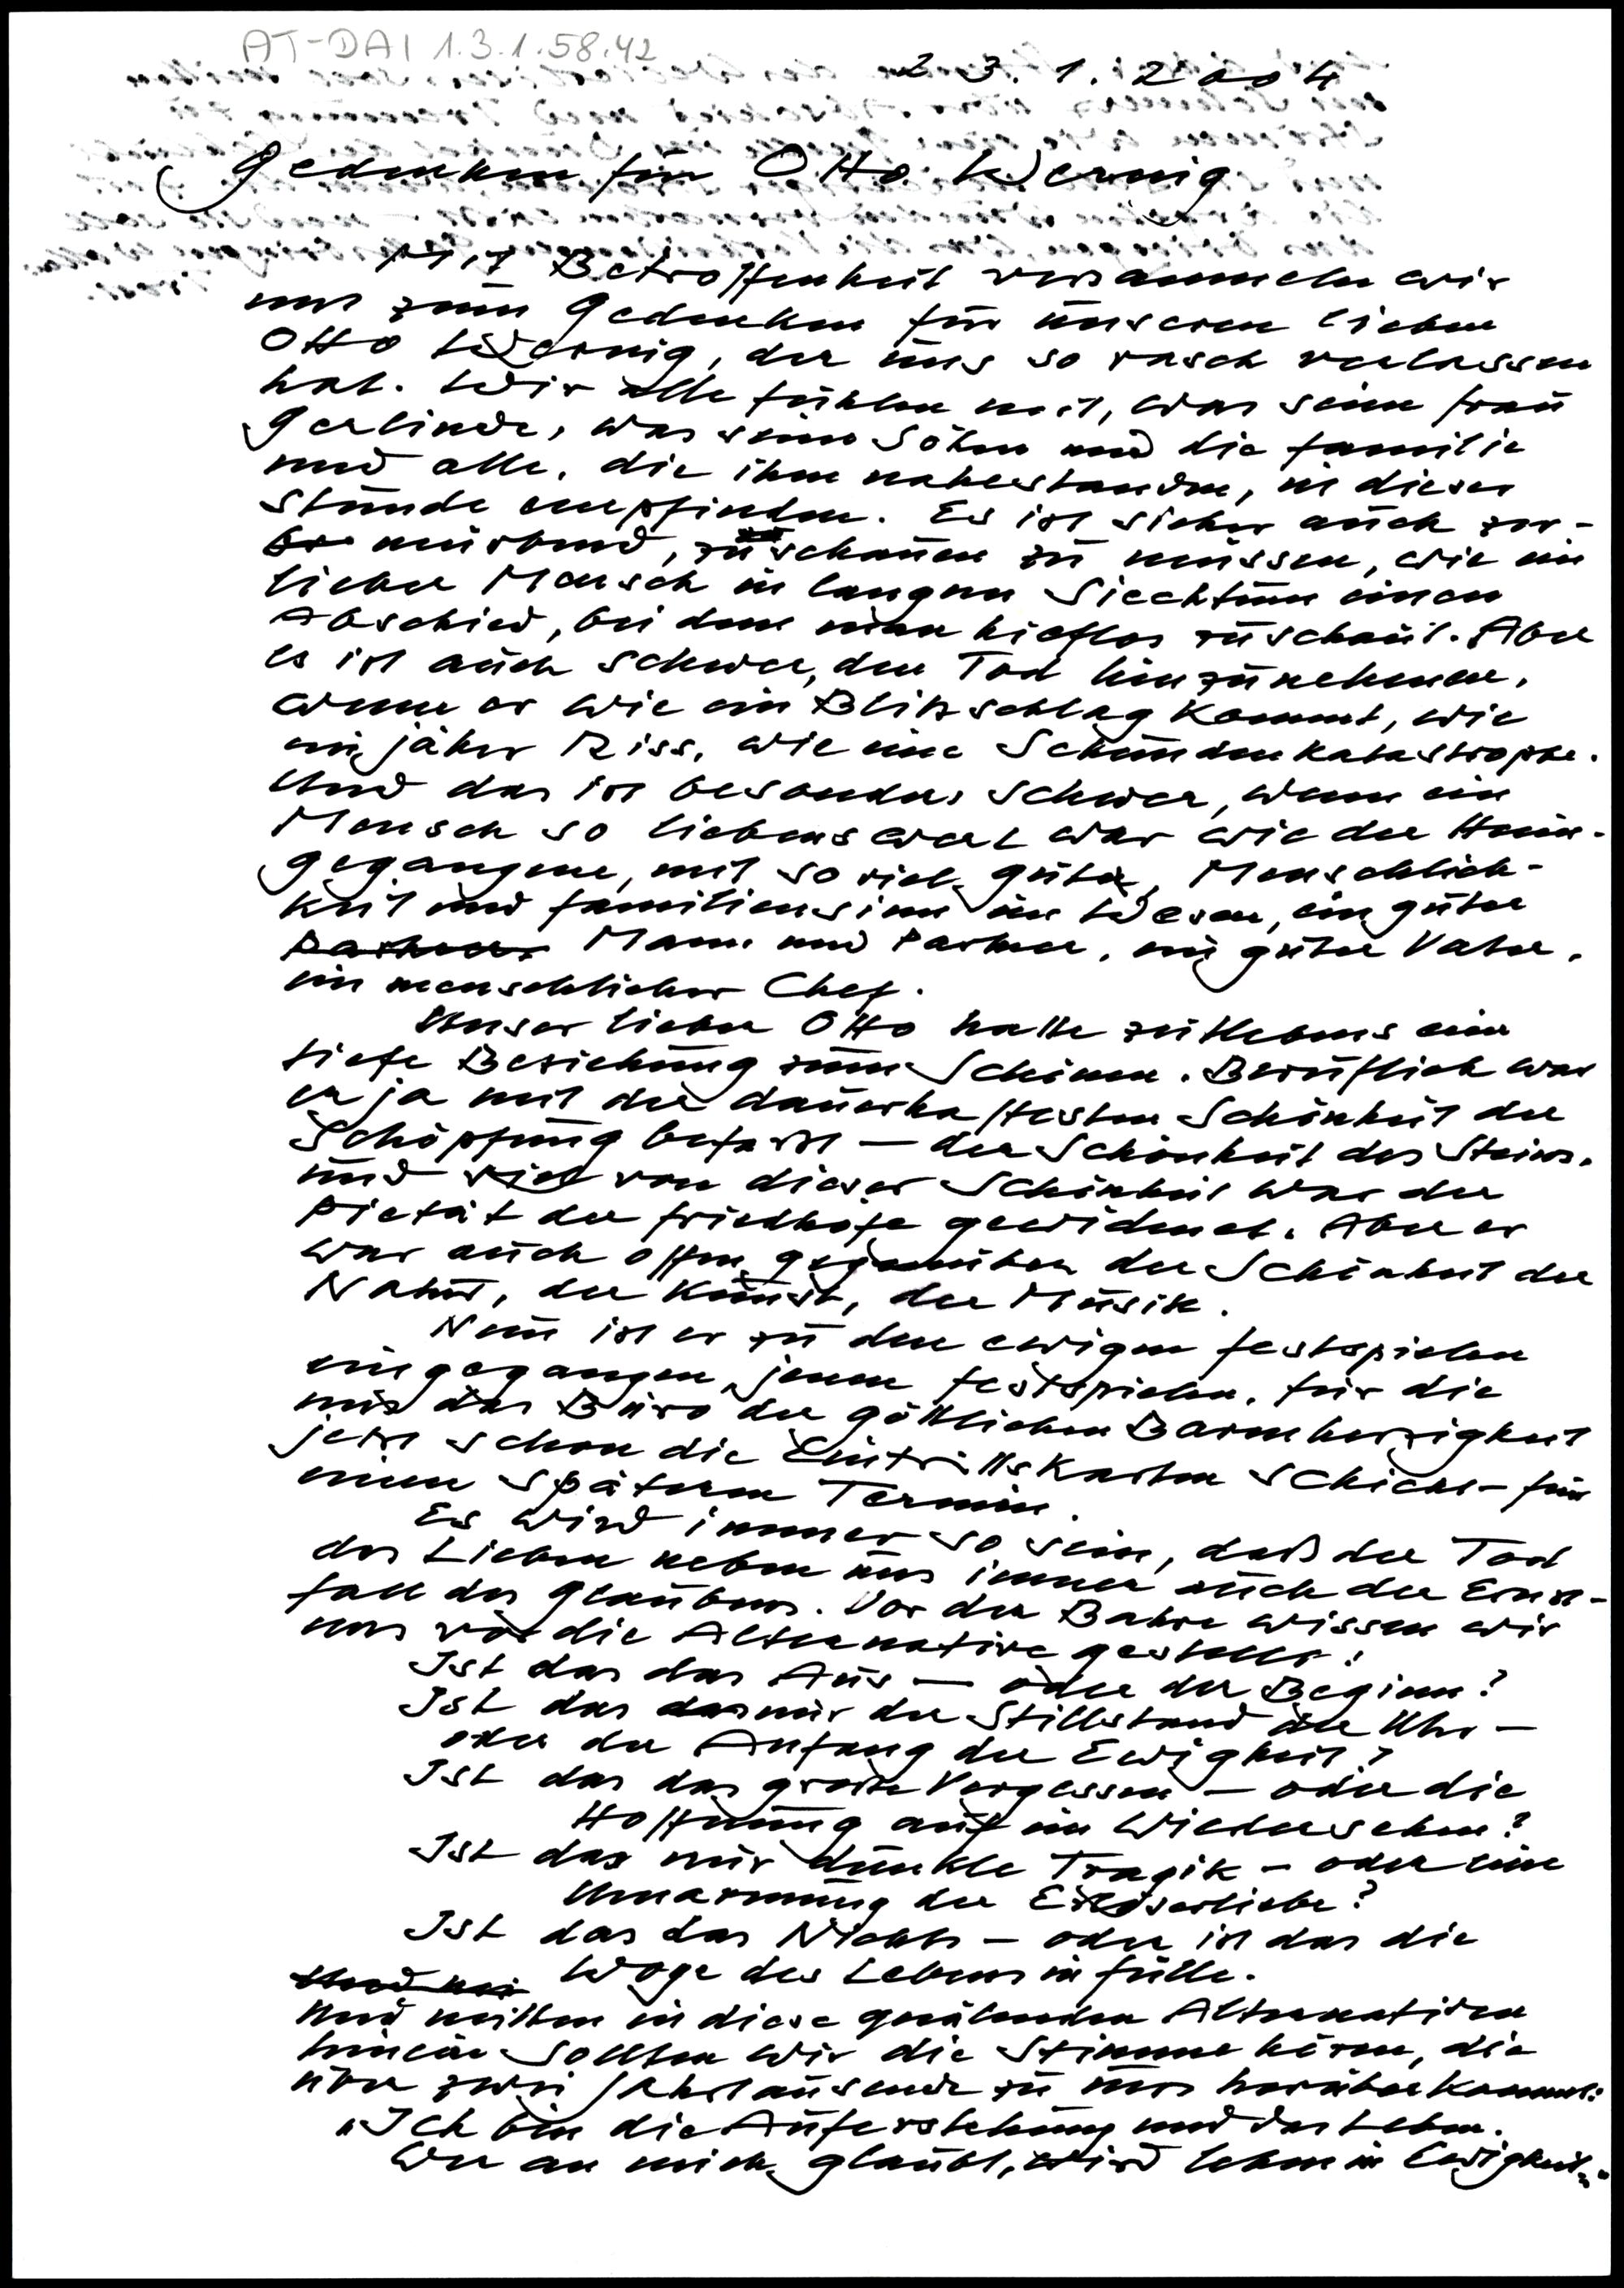 AT-DAI 1.3.1.58.42
23.1.2004
Gedenken für Otto Wernig
Mit Betroffenheit versammeln wir
uns zum Gedenken für unseren lieben
Otto Wernig, der uns so rasch verlassen
hat. Wir alle fühlen mit, was seine Frau
Gerlinde, was seine Söhne und die Familie
und alle, die ihm nahestanden, in dieser
Stunde empfinden. Es ist sicher auch zer-
mürbend, zuschauen zu müssen, wie ein
lieber Mensch in langem Siechtum einen
Abschied, bei dem man hilflos zuschaut. Aber
es ist auch schwer, den Tod hinzunehmen,
wenn er wie ein Blitzschlag kommt, wie
ein jäher Riss, wie eine Sekundenkatastrophe.
Und das ist besonders schwer, wenn ein
Mensch so liebenswert war wie der Heim-
gegangene, mit so viel Güte, Menschlich-
keit und Familiensinn im Wesen, ein guter
Partner Mann und Partner, ein guter Vater,
ein menschlicher Chef.
Unser lieber Otto hatte zeitlebens eine
tiefe Beziehung zum Schönen. Beruflich war
er ja mit der dauerhaftesten Schönheit der
Schöpfung befaßt – der Schönheit des Steins.
und viel von dieser Schönheit war der
Pietät der Friedhöfe gewidmet. Aber er
war auch offen gegenüber der Schönheit der
Natur, der Kunst, der Musik.
Nun ist er zu den ewigen Festspielen
eingegangen, jenen Festspielen, für die
uns das Büro der göttlichen Barmherzigkeit
jetzt schon die Eintrittskarten schickt – für
einen späteren Termin.
Es wird immer so sein, daß der Tod
des Lieben neben uns immer auch der Ernst-
fall des Glaubens. Vor der Bahre wissen wir
uns vor die Alternative gestellt:
Ist das das Aus – oder der Beginn?
Ist das nur der Stillstand der Uhr –
oder der Anfang der Ewigkeit?
Ist das das große Vergessen – oder die
Hoffnung auf ein Wiedersehen?
Ist das nur dunkle Tragik – oder eine
Umarmung der Erlöserliebe?
Ist das das Nichts – oder ist das die
Woge des Lebens in Fülle.
Und mitten in diese quälenden Alternativen
hinein sollten wir die Stimme hören, die
über zwei Jahrtausende zu uns herüberkommt:
„Ich bin die Auferstehung und das Leben.
Wer an mich glaubt, wird leben in Ewigkeit."